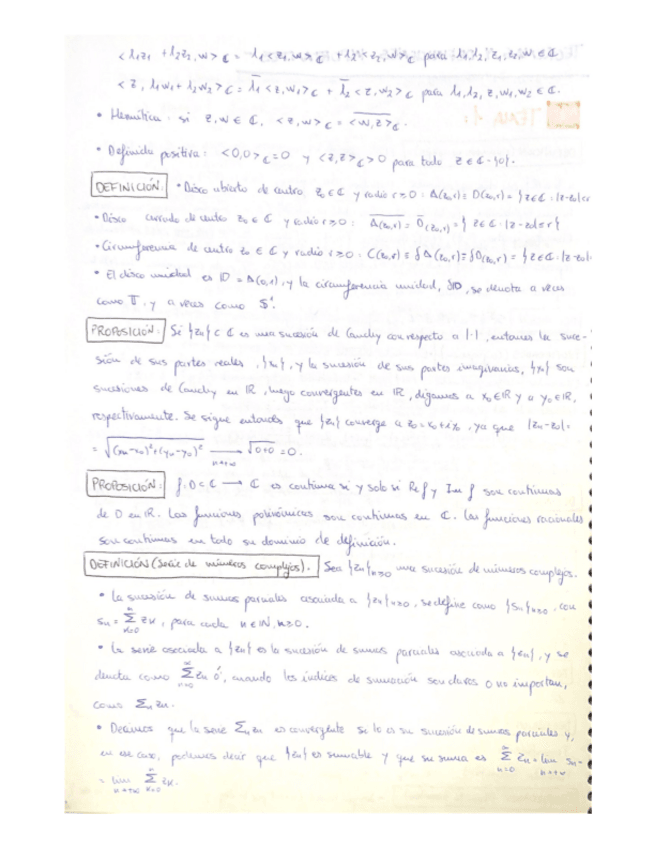 <λ₁z₁ + λ₂z₂, w>_ℂ = λ₁<z₁,w>_ℂ + λ₂<z₂,w>_ℂ para λ₁,λ₂,z₁,z₂,w ∈ ℂ
<z, λ₁w₁+λ₂w₂>_ℂ = λ̄₁<z,w₁>_ℂ + λ̄₂<z,w₂>_ℂ para λ₁,λ₂,z,w₁,w₂ ∈ ℂ.
• Hermítica: si z,w ∈ ℂ, <z,w>_ℂ = \overline{<w,z>_ℂ}.
• Definida positiva: <0,0>_ℂ=0 y <z,z>_ℂ>0 para todo z ∈ ℂ-{0}.
DEFINICIÓN: • Disco abierto de centro z₀∈ℂ y radio r≥0: Δ(z₀,r) ≡ D(z₀,r) = {z∈ℂ: |z-z₀|<r
• Disco cerrado de centro z₀ ∈ ℂ y radio r≥0: \overline{Δ(z₀,r)} = \overline{D}(z₀,r) = { z∈ℂ: |z-z₀|≤r}
• Circunferencia de centro z₀ ∈ ℂ y radio r≥0: C(z₀,r) ≡ ∂Δ(z₀,r) ≡ ∂D(z₀,r) = {z∈ℂ: |z-z₀|
• El disco unidad es 𝔻 = Δ(0,1), y la circunferencia unidad, ∂𝔻, se denota a veces
como 𝕋, y a veces como S¹.
PROPOSICIÓN: Si {zₙ} ⊂ ℂ es una sucesión de Cauchy con respecto a |·|, entonces la suce-
sión de sus partes reales, {xₙ}, y la sucesión de sus partes imaginarias, {yₙ} son
sucesiones de Cauchy en ℝ, luego convergentes en ℝ, digamos a x₀∈ℝ y a y₀∈ℝ,
respectivamente. Se sigue entonces que {zₙ} converge a z₀=x₀+iy₀, ya que |zₙ-z₀|=
= √((xₙ-x₀)²+(yₙ-y₀)²) ⟶_{n→+∞} √(0+0) = 0.
PROPOSICIÓN: f: D⊂ℂ ⟶ ℂ es continua si y solo si Re f y Im f son continuas
de D en ℝ. Las funciones polinómicas son continuas en ℂ. Las funciones racionales
son continuas en todo su dominio de definición.
DEFINICIÓN (Serie de números complejos). Sea {zₙ}ₙ≥₀ una sucesión de números complejos.
• La sucesión de sumas parciales asociada a {zₙ}ₙ≥₀, se define como {Sₙ}ₙ≥₀, con
Sₙ = \sum_{k=0}^{n} z_k, para cada n∈ℕ, n≥0.
• La serie asociada a {zₙ} es la sucesión de sumas parciales asociada a {zₙ}, y se
denota como \sum_{n=0}^{∞} zₙ ó, cuando los índices de sumación son claros o no importan,
como Σₙ zₙ.
• Decimos que la serie Σₙ zₙ es convergente si lo es su sucesión de sumas parciales y,
en ese caso, podemos decir que {zₙ} es sumable y que su suma es \sum_{n=0}^{∞} zₙ = lim_{n→+∞} Sₙ =
= lim_{n→+∞} \sum_{k=0}^{n} z_k.